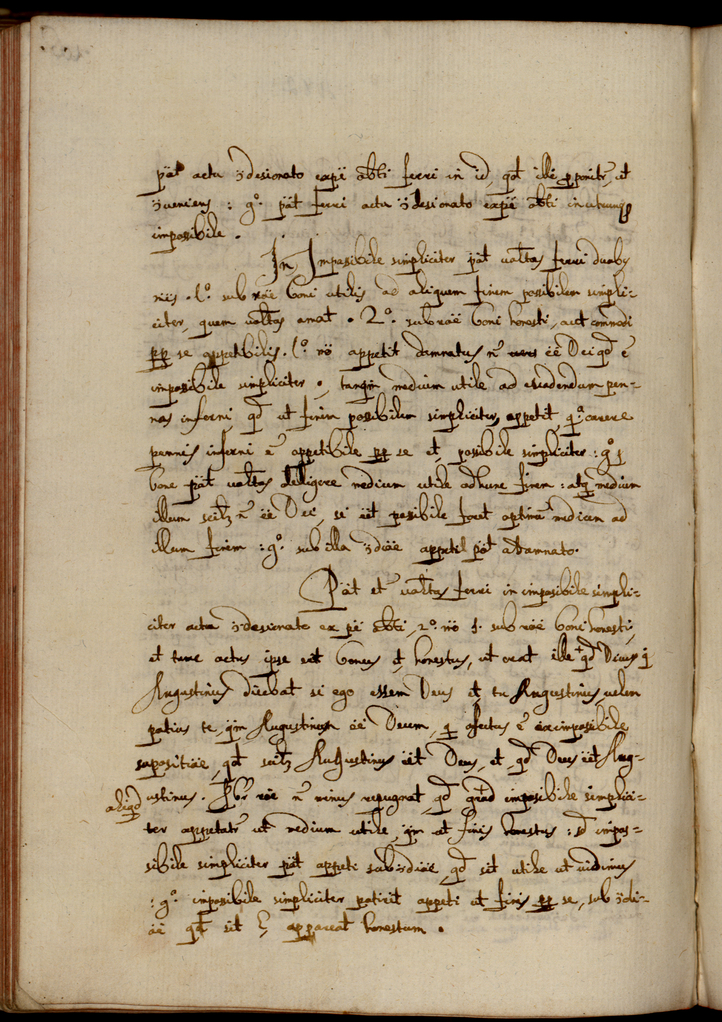 põt actu ɔdesionato expĩ obti ferri in id, qđ illi pponitr, ut
ɔueniens : gº. põt ferri actu ɔdesionato expĩ obti in utrumq
imposibile .
In Imposibile simpliciter põt uoltas ferri duaby
viis . 1º. sub rõe boni utilis ad aliquem finem posibilem simpli-
citer, quem uoltas amat . 2º. sub rõe boni honesti, aut commodi
pp se appetibilis. 1º. mõ appetit damnatus ñ esse Dei qđ ẽ
imposibile simpliciter, tanqm medium utile ad euadendum pen-
nas inferni, qđ ut finem posibilem simpliciter, appetit, qª. carere
pennis inferni ẽ appetibile pp se et posibile simpliciter : gº
bone põt uoltas elligere medium utile ad hunc finem : atq medium
illum scilz ñ ẽe Dei, si eẽt posibile foret optimũ medium ad
illum finem : gº. sub illa ɔdiõe appetil põt a damnato.
Põt et uoltas ferri in imposibile simpli-
citer actu ɔdesionato ex pĩ obti, 2º. mõ s. sub rõe boni honesti,
et tunc actus ipse erit bonus et honestus, ut erat ille qđ Diuus
Augustinus dicebat si ego essem Deus et tu Augustinus uelem
potius te, qm Augustinum ẽe Deum, q afectus ẽ ex imposibile
supositiõe, qđ scilz Augustinus eẽt Deus, et qđ Deus eẽt Aug-
ustinus. Pbr rõe ñ minus repugnat, qđ qđ imposibile simplici-
aliqđ
ter appetatr ut medium utile, qm ut finis honestus : sđ impos-
sibile simpliciter põt appeti sub ɔdiõe, qđ sit utile ut uidimus
: gº. imposibile simpliciter poterit appeti ut finis pp se, sub ɔdi-
õe qđ sit l, appareat honestum .